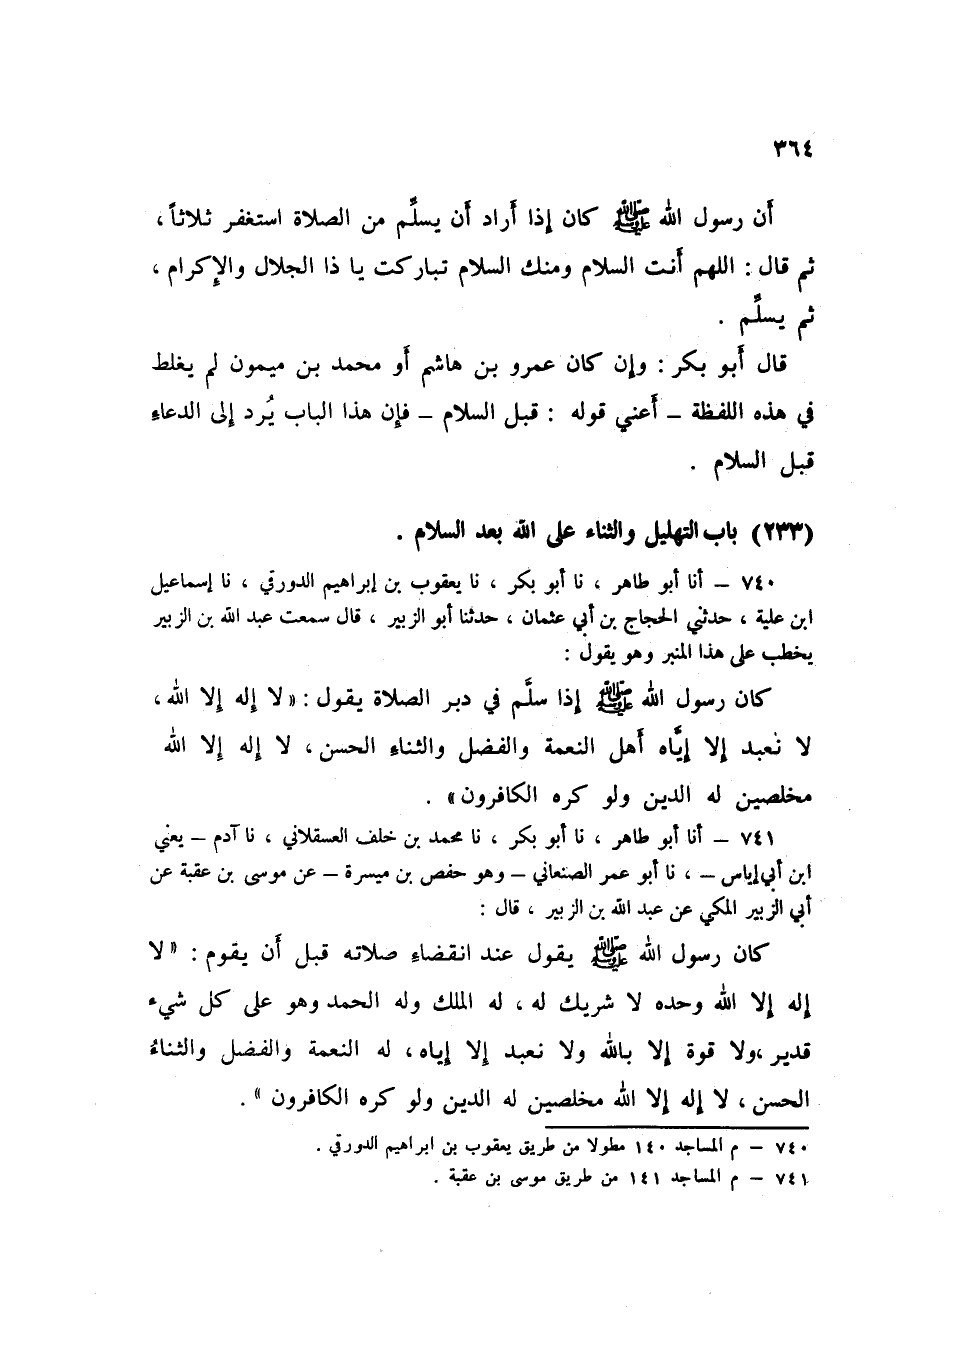 ٣٦٤
أن رسول الله ﷺ كان إذا أراد أن يسلِّم من الصلاة استغفر ثلاثاً ،
ثم قال : اللهم أنت السلام ومنك السلام تباركت يا ذا الجلال والإكرام ،
ثم يسلِّم .
قال أبو بكر : وإن كان عمرو بن هاشم أو محمد بن ميمون لم يغلط
في هذه اللفظة – أعني قوله : قبل السلام – فإن هذا الباب يُرد إلى الدعاء
قبل السلام .
(٢٣٣) باب التهليل والثناء على الله بعد السلام .
٧٤٠ – أنا أبو طاهر ، نا أبو بكر ، نا يعقوب بن إبراهيم الدورقي ، نا إسماعيل
ابن علية ، حدثني الحجاج بن أبي عثمان ، حدثنا أبو الزبير ، قال سمعت عبد الله بن الزبير
يخطب على هذا المنبر وهو يقول :
كان رسول الله ﷺ إذا سلَّم في دبر الصلاة يقول : « لا إله إلا الله ،
لا نعبد إلا إيَّاه أهل النعمة والفضل والثناء الحسن ، لا إله إلا الله
مخلصين له الدين ولو كره الكافرون» .
٧٤١ – أنا أبو طاهر ، نا أبو بكر ، نا محمد بن خلف العسقلاني ، نا آدم – يعني
ابن أبي إياس – ، نا أبو عمر الصنعاني – وهو حفص بن ميسرة – عن موسى بن عقبة عن
أبي الزبير المكي عن عبد الله بن الزبير ، قال :
كان رسول الله ﷺ يقول عند انقضاء صلاته قبل أن يقوم : « لا
إله إلا الله وحده لا شريك له ، له الملك وله الحمد وهو على كل شيء
قدير ،ولا قوة إلا بالله ولا نعبد إلا إياه ، له النعمة والفضل والثناءُ
الحسن ، لا إله إلا الله مخلصين له الدين ولو كره الكافرون » .
٧٤٠ – م المساجد ١٤٠ مطولا من طريق يعقوب بن ابراهيم الدورقي .
٧٤١ – م المساجد ١٤١ من طريق موسى بن عقبة .